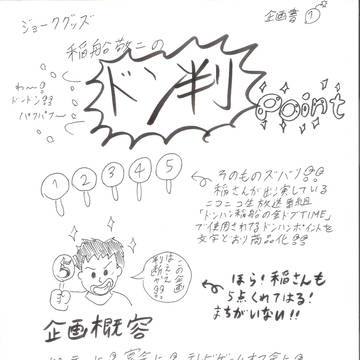 企画書①
ジョークグッズ
稲船敬二の
わ〜!!
ドンドン!!
パフパフ〜
ドン判
Point
1 2 3 4 5
そのものズバリ!!
稲さんが出演している
ニコニコ生放送番組
「ドンハン稲船の金ドブTIME」
で使用されるドンハンポイントを
文字どおり商品化!!
この企画
はええ
判断や!!
5
ほら!稲さんも
5点くれてはる!
まちがいない!!
企画概容